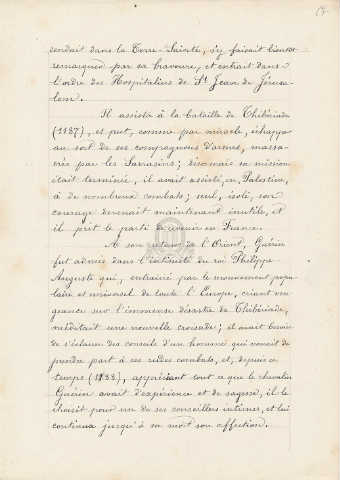 rendait dans la Terre-Sainte, s'y faisait bientôt
remarquer par sa bravoure, et entrait dans
l'ordre des Hospitaliers de St Jean de Jérusa-
lem.
Il assista à la bataille de Thibériade
(1187), et put, comme par miracle, échapper
au sort de ses compagnons d'armes, massa-
crés par les Sarrasins; désormais sa mission
était terminée, il avait assisté, en Palestine,
à de nombreux combats; seul, isolé, son
courage devenait maintenant inutile, et
il prit le parti de revenir en France.
A son retour de l'Orient, Guérin
fut admis dans l'intimité du roi Philippe
Auguste qui, entraîné par le mouvement popu-
laire et universel de toute l'Europe, criant ven-
geance sur l'immense désastre de Thibériade,
méditait une nouvelle croisade; il avait besoin
de s'éclairer des conseils d'un homme qui venait de
prendre part à ces rudes combats, et, depuis ce
temps (1188), appréciant tout ce que le chevalier
Guérin avait d'expérience et de sagesse, il le
choisit pour un de ses conseillers intimes, et lui
continua jusqu'à sa mort son affection.